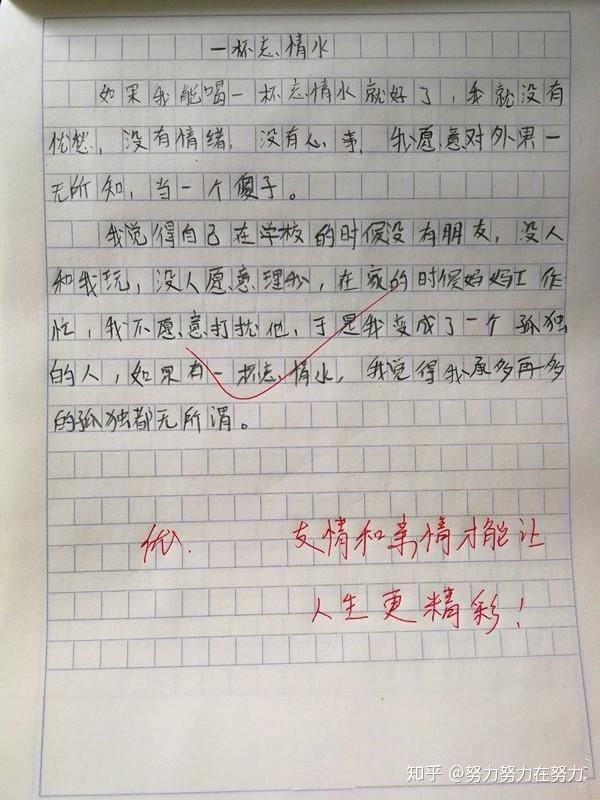 一杯忘情水
如果我能喝一杯忘情水就好了，我就没有
忧愁，没有情绪，没有心事，我愿意对外界一
无所知，当一个傻子。
我觉得自己在学校的时候没有朋友，没人
和我玩，没人愿意理我，在家的时候妈妈工作
忙，我不愿意打扰他，于是我变成了一个孤独
的人，如果有一杯忘情水，我觉得我承多再多
的孤独都无所谓。
优
友情和亲情才能让
人生更精彩！
知乎 @努力努力在努力